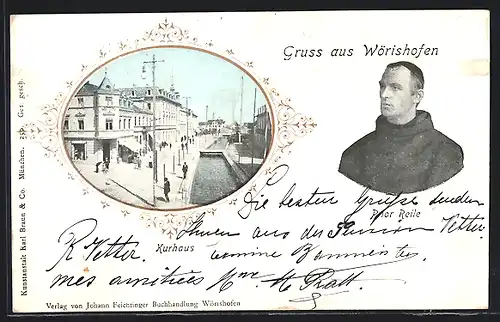 Gruss aus Wörishofen
Prior Reile
Kurhaus
Die besten Grüsse senden
Ihnen aus der Pension Vetter.
R. Vetter.
mes amitiés Mme
Kunstanstalt Karl Braun & Co. München. Ges. gesch.
Verlag von Johann Feichtinger Buchhandlung Wörishofen